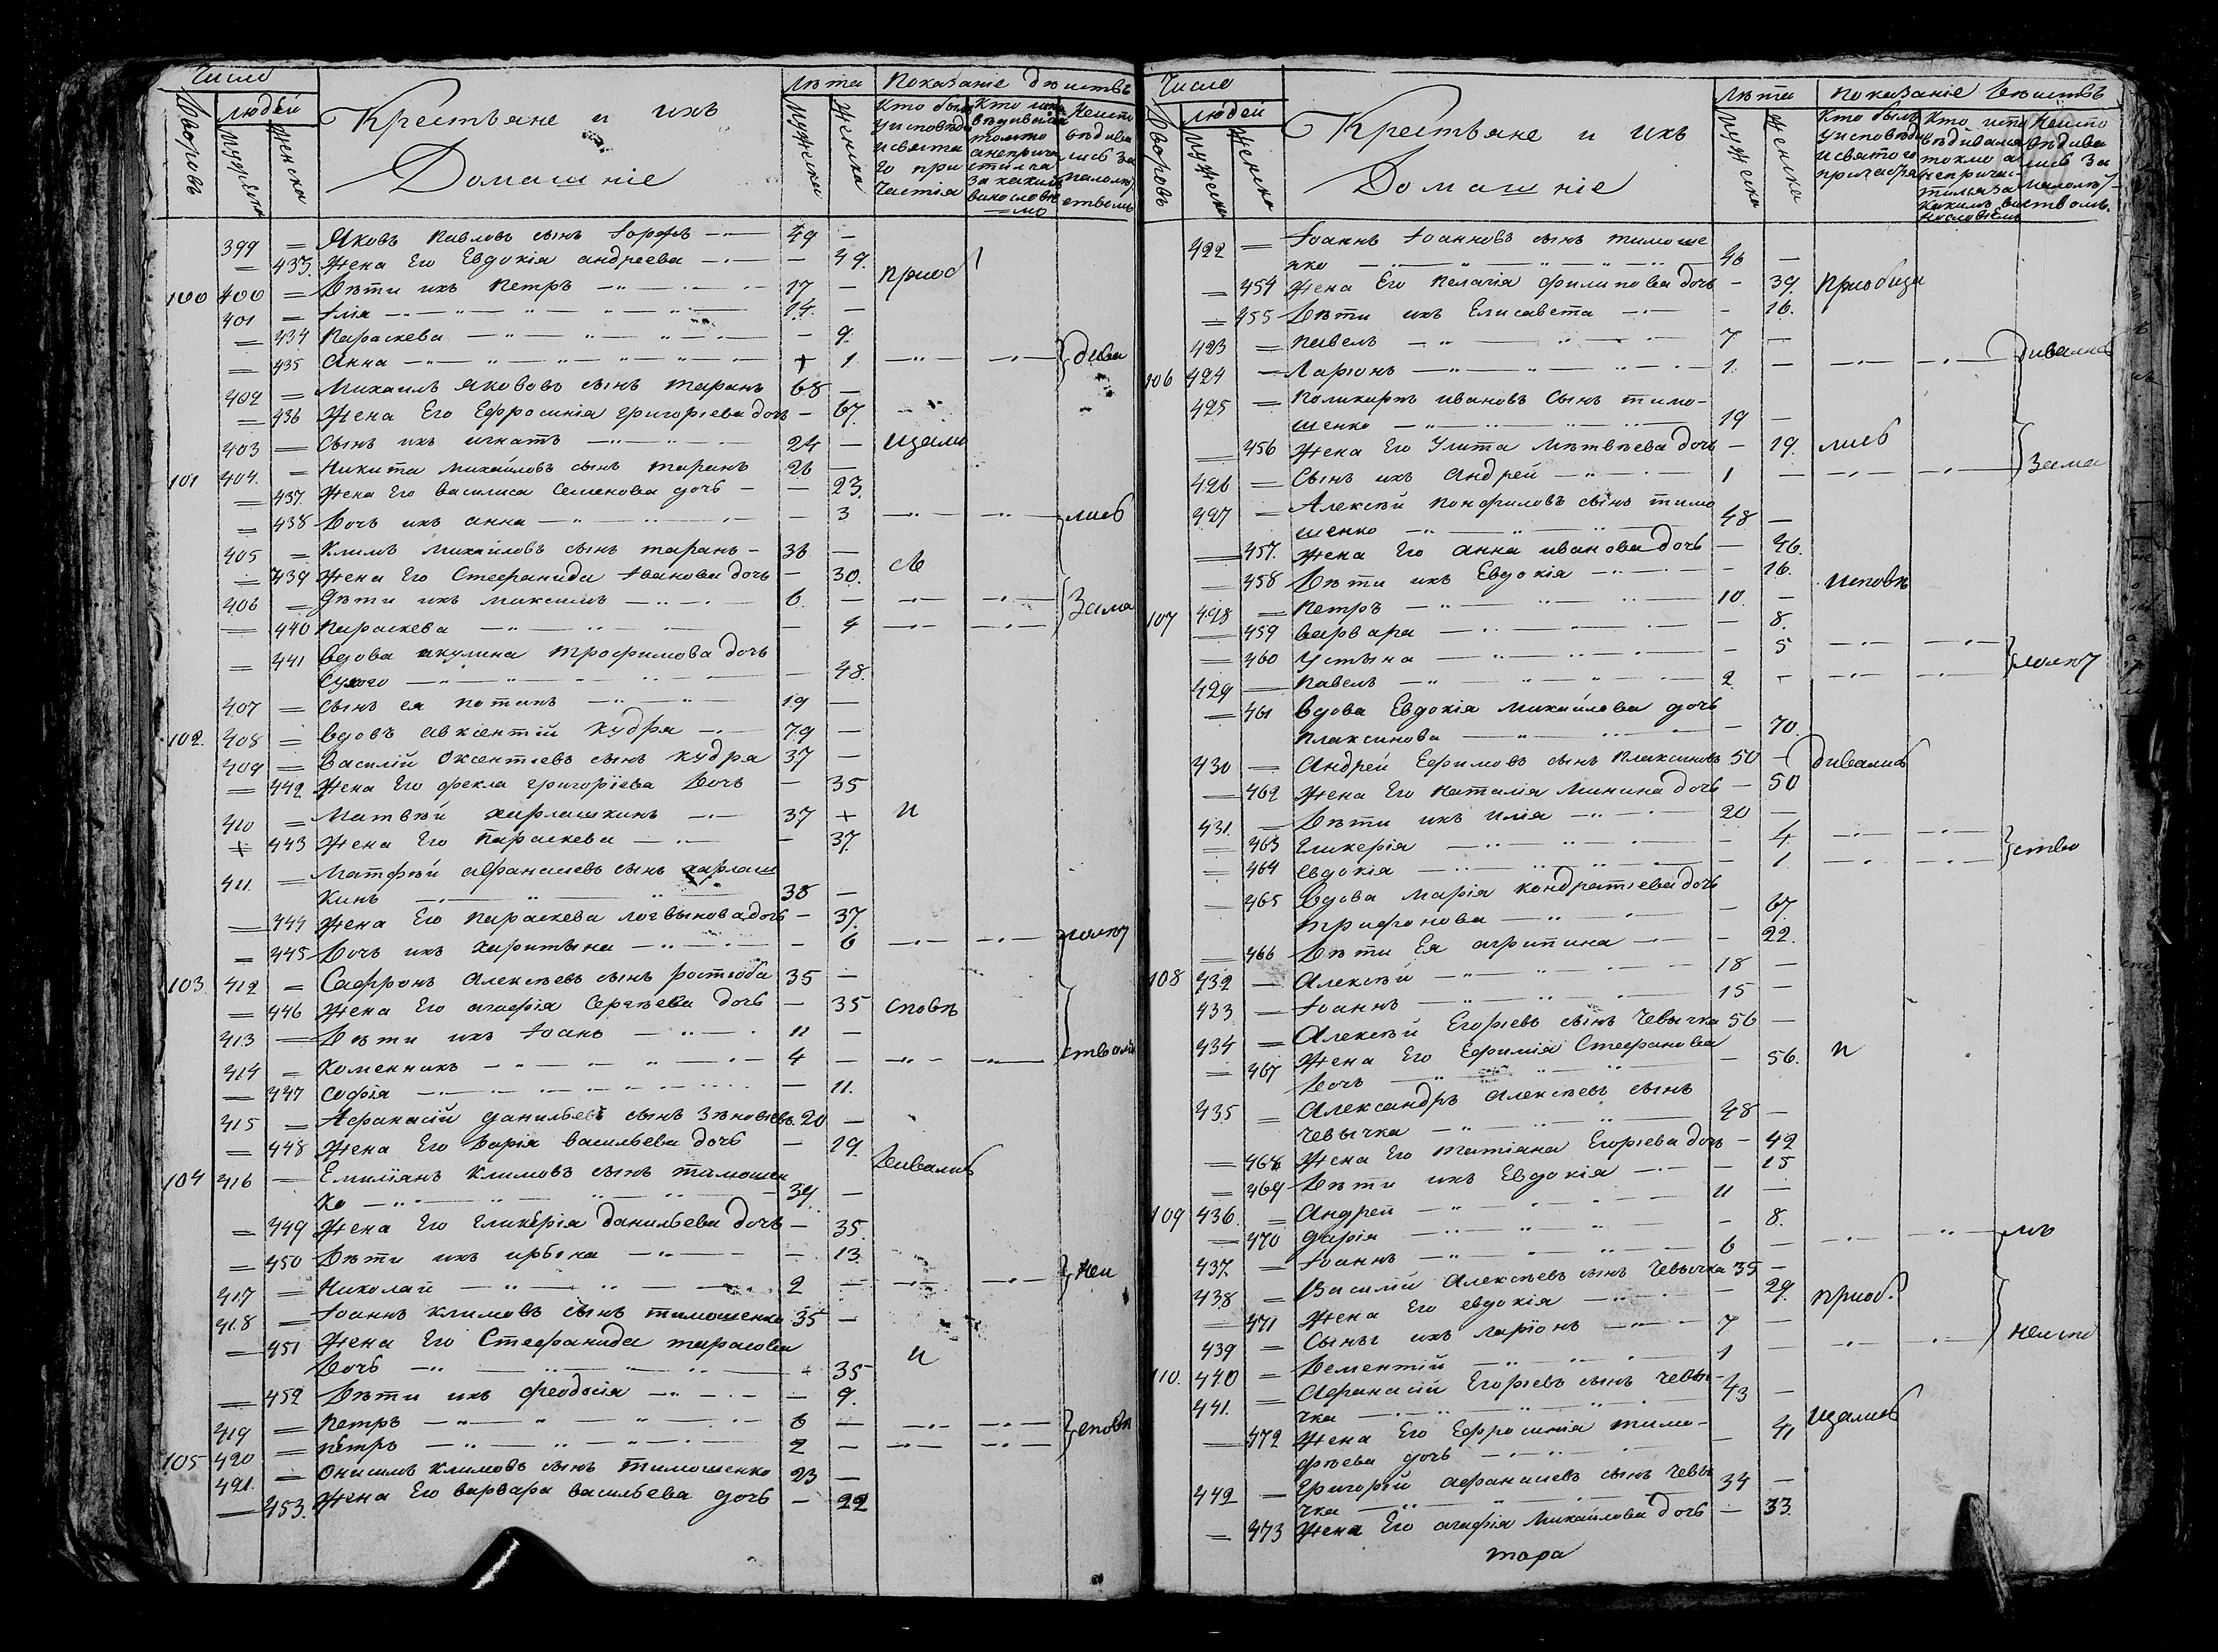 Число
людей
Дворовъ
Мужеска
Женска
Крестьяне и ихъ
Домашніе
Лѣта
Мужеска
Женска
Показаніе дѣиствъ
Кто былъ
у исповѣди
и свята
го при
частія
Кто испо
вѣдивался
токмо
а неприча
стился
за какимъ
винословіе
мо
Неиспо
вѣдива
лись за
малолѣ
ствомъ
399 = Яковъ Павловъ сынъ 49 —
= 433 Жена Его Евдокія андреева — 49. приоб
100 400 = Дѣти ихъ Петръ 17 —
401 = Илія 14. —
= 434 Параскева — 9.
= 435 Анна + 1. дива
402 = Михаилъ Якововъ сынъ таранъ 68 —
= 436 Жена Его Ефросинія григоріева дочь — 67.
403 = Сынъ ихъ игнатъ 24 — щали
101 404. = Никита михайловъ сынъ таранъ 26 —
= 437. Жена Его василиса Семенова дочь — 23.
= 438 Дочь ихъ анна — 3 лись
405 = Климъ михайловъ сынъ таранъ 36 —
= 439 Жена Его Стефанида Іванова дочь — 30. сь
406 = Дѣти ихъ максимъ 6. — Зама
= 440 Параскева — 4
= 441 Вдова акулина трофимова дочь
Сухого — 48.
407 = Сынъ ея потапъ 19 —
102. 408 = Вдовъ авксентій кудря 79 —
409 = Василій Оксентіевъ сынъ кудря 37 —
= 442 Жена Его фекла григоріева Дочь — 35
410 = Матвѣй харлашкинъ 37 + и
+ 443 Жена Его Параскева — 37.
411. = Матфѣй афанасиевъ сынъ харлаш
кинъ 38 —
= 444 Жена Его Параскева логвынова дочь — 37.
= 445 Дочь ихъ харитына — 6 лолѣт
103. 412 = Сафронъ Алексѣевъ сынъ ростюба 35 —
= 446 Жена Его агафія Сергѣева дочь — 35 сповѣ
413 = Дѣти ихъ Іоанъ 11 —
414 = Коменникъ 4 — ствомъ
= 447 Софія — 11.
415 = Афанасій данильевъ сынъ Зѣновіевъ 20 —
= 448 Жена Его Дарія васильева дочь — 19. дивались
104 416 — Емиліянъ Климовъ сынъ тимошен
ко 39. —
= 449 Жена Его Гликерія данильева дочь — 35.
= 450 Дѣти ихъ ирына — 13.
417 = Николай 2 — Неи
418 = Іоаннъ климовъ сынъ тимошенко 35 —
= 451 Жена Его Стефанида тарасова
Дочь 35 и
= 452 Дѣти ихъ Феодосія — 9.
419 = Петръ 6 — спови
105 420 = петръ 2 —
421. = Онисимъ климовъ сынъ тимошенко 23 —
— 453. Жена Его варвара васильева дочь — 22
Число
людей
Дворовъ
Мужеска
Женска
Крестьяне и ихъ
Домашніе
Лѣта
Мужеска
Женска
Показаніе дѣиствъ
Кто былъ
у исповѣди
и святого
причастія
Кто испо
вѣдивался
токмо а
непричас
тился за
какимъ ви
нословіемъ
Неиспо
вѣдива
лись за
малолѣт
ствомъ.
422 = Іоаннъ Іоанновъ сынъ тимоше
нко 46 —
= 454 Жена Его пелагія филипова дочь — 39. приобща
= 455 Дѣти ихъ Елисавета — 16.
423 = Павелъ 7 —
106 424 — Ларіонъ 1. — дивались
425 = Поликарпъ ивановъ Сынъ тимо-
шенко 19 —
= 456 Жена Его Улита Матвѣева дочь — 19. лись
426 = Сынъ ихъ Андрей 1 — Зама
427 = Алексѣй Понфиловъ сынъ тимо
шенко 48 —
= 457. Жена Его Анна иванова дочь — 46.
= 458 Дѣти ихъ Евдокія — 16. исповѣ
107 428 = Петръ 10. —
= 459 варвара — 8.
= 460 Устына — 5 лолѣт
429 — Павелъ 2. —
= 461 Вдова Евдокія Михайлова дочь
Плаксинова — 70.
430 — Андрей Ефимовъ сынъ Плаксиновъ 50 — дивались
= 462 Жена Его Наталія Минина дочь — 50
431. = Дѣти ихъ Илія 20 —
= 463 Гликерія — 4. ство
= 464 Евдокія — 1.
— 465 Вдова Марія Кондратіева дочь
трифонова — 67.
= 466 Дѣти Ея агрипина — 22.
108 432 — Алексѣй 18 —
433 — Іоаннъ 15 —
434 = Алексѣй Егоріевъ сынъ Чевычка 56 —
= 467 Жена Его Ефимія Стефанова
Дочь — 56. и
435 = Александръ Алексѣевъ сынъ
Чевычка 48 —
= 468 Жена Его татіана Егоріева дочь — 42
= 469 Дѣти ихъ Евдокія — 15
109 436. = Андрей 11 —
= 470 Дарія — 8. мъ
437. = Іоаннъ 6 —
438 = Василій Алексѣевъ сынъ Чевычка 35 —
= 471 Жена Его евдокія — 29. приоб
439 = Сыны ихъ ларіонъ 7 — Неиспо
110. 440 = Дементій 1 —
441. = Афанасій Егоріевъ сынъ чевы-
чка 43 —
= 472 Жена Его Ефросинія тимо-
фѣева дочь — 41 щались
442 — Григорій афанасиевъ сынъ Чевы
чка 34 —
= 473 Жена Его агафія Михайлова дочь — 33.
тара